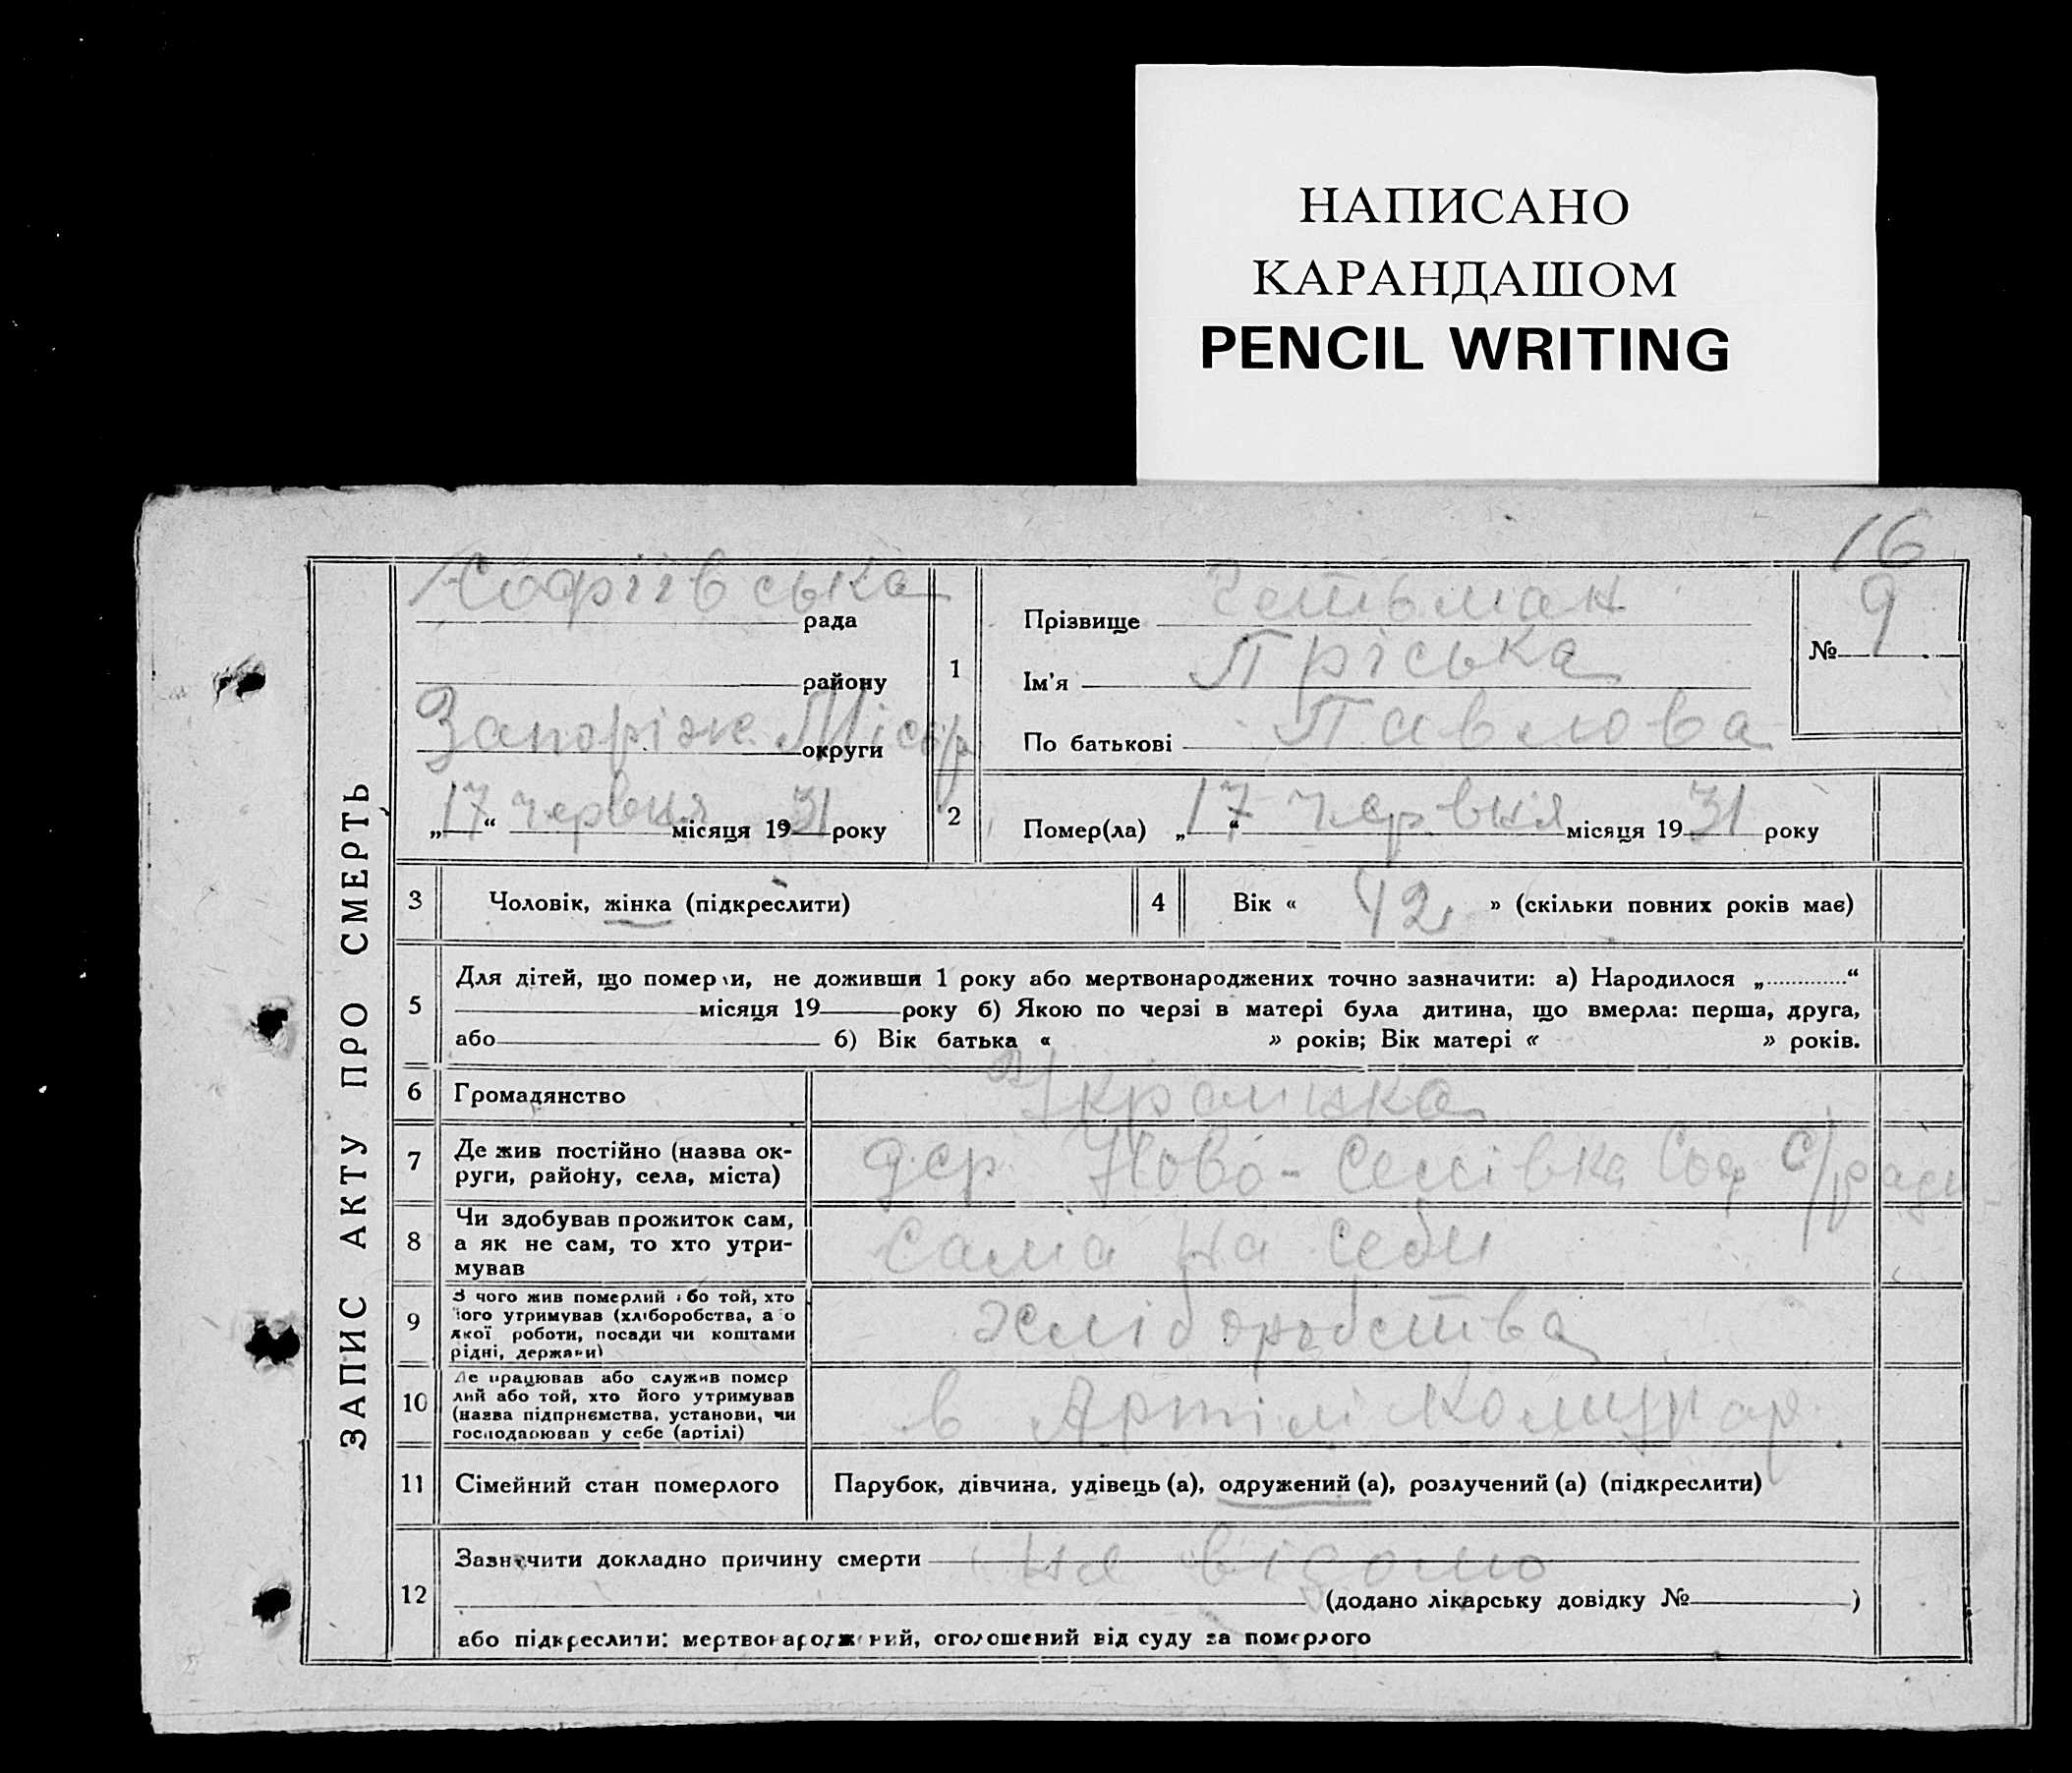 НАПИСАНО
КАРАНДАШОМ
PENCIL WRITING
16
ЗАПИС АКТУ ПРО СМЕРТЬ
Софіївська рада
району
Запоріж. Міськр округи
„17“ червня місяця 1931 року
1
Прізвище Гетьман
Ім'я Пріська
По батькові Павлова
№ 9
2
Помер(ла) „17“ червня місяця 1931 року
3 Чоловік, жінка (підкреслити)
4 Вік « 42 » (скільки повних років має)
5 Для дітей, що померли, не доживши 1 року або мертвонароджених точно зазначити: а) Народилося „ “
місяця 19 року б) Якою по черзі в матері була дитина, що вмерла: перша, друга,
або б) Вік батька « » років; Вік матері « » років.
6 Громадянство Українка
7 Де жив постійно (назва ок-
руги, району, села, міста) дер. Ново- Софі с/ради
8 Чи здобував прожиток сам,
а як не сам, то хто утри-
мував сама на себе
9 З чого жив померлий або той, хто
його утримував (хліборобства, або
якої роботи, посади чи коштами
рідні, держави) хліборобства
10 Де працював або служив помер
лий або той, хто його утримував
(назва підприємства, установи, чи
господарював у себе (артілі) в Артілі Комунар
11 Сімейний стан померлого Парубок, дівчина, удівець (а), одружений (а), розлучений (а) (підкреслити)
12 Зазначити докладно причину смерти не відомо
(додано лікарську довідку № )
або підкреслити: мертвонароджений, оголошений від суду за померлого